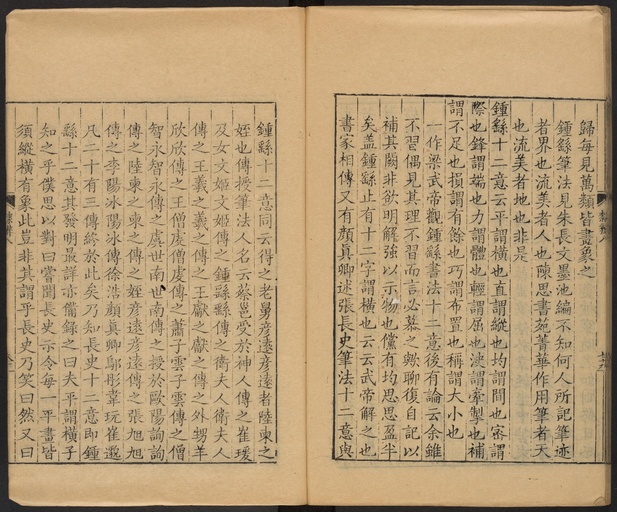 歸每見萬類皆畫象之
鍾繇筆法見朱長文墨池編不知何人所記筆迹
者界也流美者人也陳思書苑菁華作用筆者天
也流美者地也非是
鍾繇十二意云平謂橫也直謂縱也均謂間也密謂
際也鋒謂端也力謂體也輕謂屈也決謂牽掣也補
謂不足也損謂有餘也巧謂布置也稱謂大小也
一作梁武帝觀鍾繇書法十二意後有論云余雖
不習偶見其理不習而言必慕之歟聊復自記以
補其闕非欲明解強以示物也儻有均思思盈半
矣蓋鍾繇止有十二字謂橫也云云武帝解之也
書家相傳又有顏真卿述張長史筆法十二意與
鍾繇十二意同云得之老舅彦遠彦遠者陸柬之
姪也傳授筆法人名云蔡邕受於神人傳之崔瑗
及女文姬文姬傳之鍾繇繇傳之衛夫人衛夫人
傳之王羲之羲之傳之王獻之獻之傳之外甥羊
欣欣傳之王僧虔僧虔傳之蕭子雲子雲傳之僧
智永智永傳之虞世南世南傳之授於歐陽詢詢
傳之陸柬之柬之傳之姪彦遠彦遠傳之張旭旭
傳之李陽冰陽冰傳徐浩顏真卿鄔彤韋玩崔邈
凡二十有三傳終於此矣乃知長史十二意即鍾
繇十二意其發明最詳亦備錄之曰夫平謂橫子
知之乎僕思以對曰嘗聞長史示令每一平畫皆
須縱橫有象此豈非其謂乎長史乃笑曰然又曰